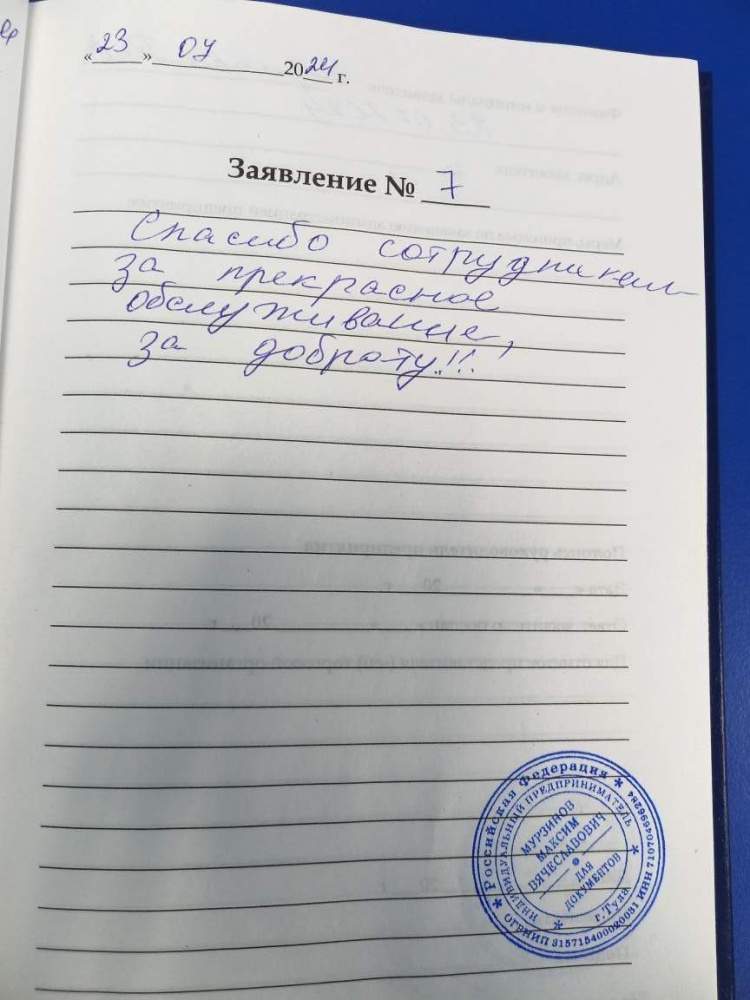 «23» 04 2024 г.
Заявление № 7
Спасибо сотрудникам
за прекрасное
обслуживание,
за доброту!!!
* Российская Федерация *
ИНДИВИДУАЛЬНЫЙ ПРЕДПРИНИМАТЕЛЬ
МУРЗИНОВ
МАКСИМ
ВЯЧЕСЛАВОВИЧ
ДЛЯ
ДОКУМЕНТОВ
* г.Тула *
ОГРНИП 315715400020081 ИНН 710704696284